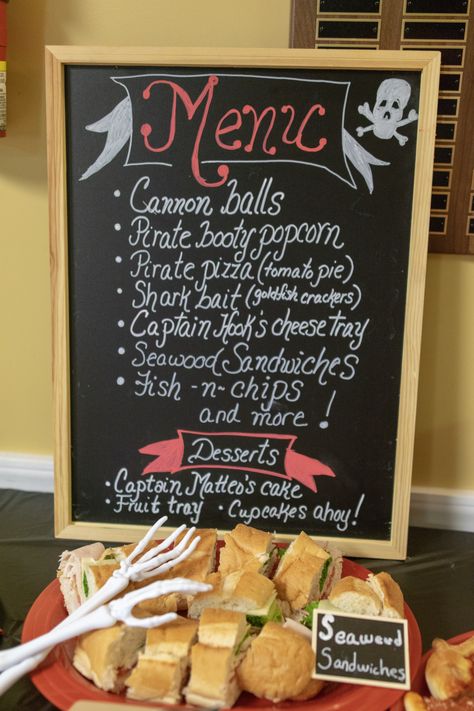 Menu
· Cannon balls
· Pirate booty popcorn
· Pirate pizza (tomato pie)
· Shark bait (goldfish crackers)
· Captain Hook's cheese tray
· Seawood Sandwiches
· Fish -n- chips
and more!
Desserts
· Captain Matteo's cake
· Fruit tray · Cupcakes ahoy!
Seaweed
Sandwiches